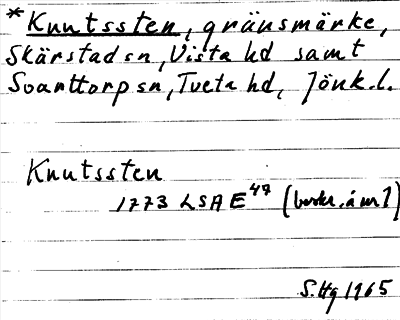 *Knutssten, gränsmärke,
Skärstad sn, Vista hd samt
Svarttorp sn, Tveta hd, Jönk.l.
Knutssten
1773 LSA E47
S.Hg 1965